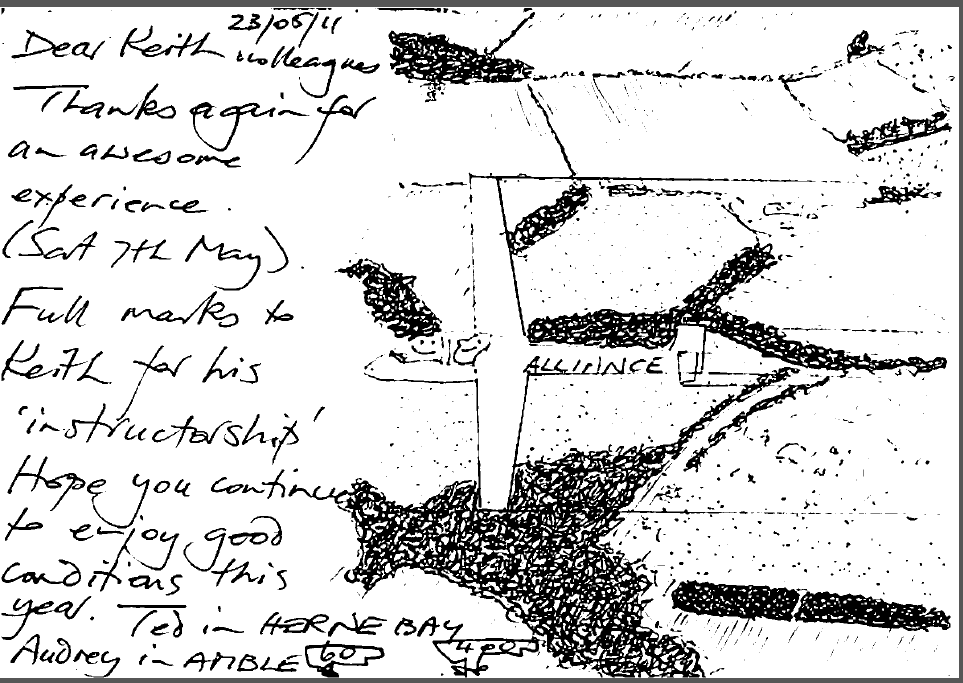 23/05/11
Dear Keith & colleagues
Thanks again for
an awesome
experience.
(Sat 7th May).
Full marks to
Keith for his
'instructorship'
Hope you continue
to enjoy good
conditions this
year. Ted in HERNE BAY
Audrey in AMBLE 60 400
ALLIANCE